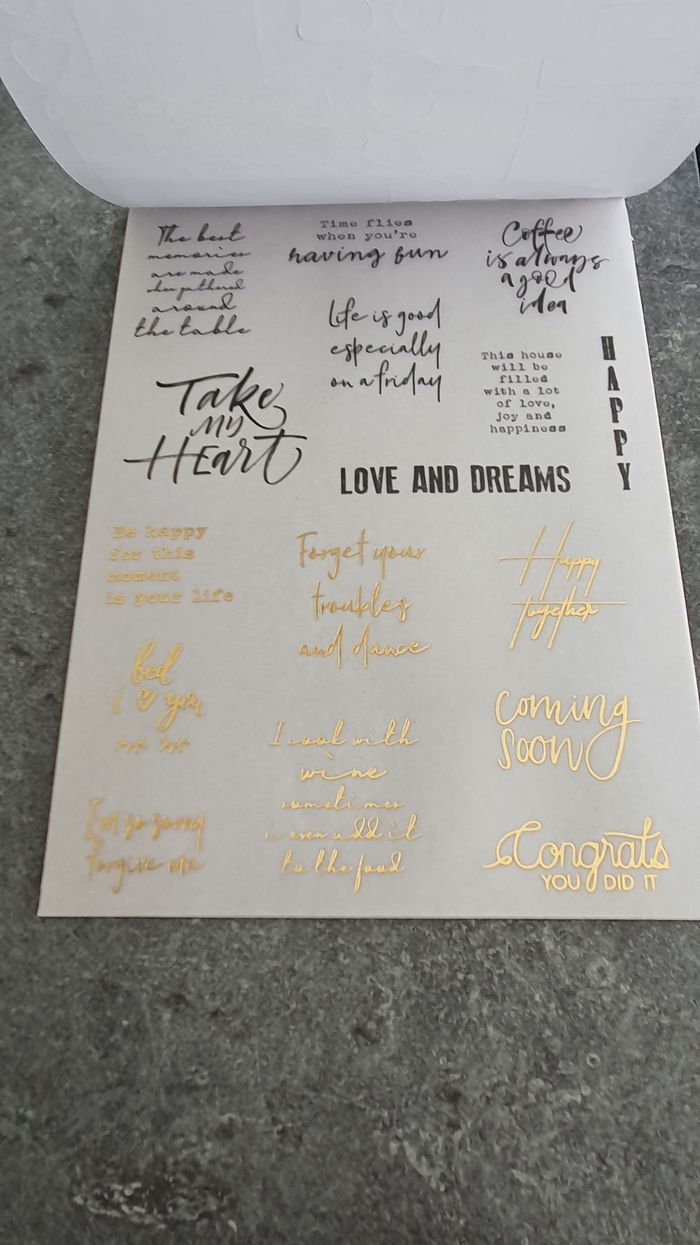 The best
memories
are made
when gathered
around
the table
Time flies
when you're
having fun
Coffee
is always
a good
idea
Life is good
especially
on a friday
This house
will be
filled
with a lot
of love,
joy and
happiness
HAPPY
Take
MY
HEart
LOVE AND DREAMS
Be happy
for this
moment
is your life
Forget your
troubles
and dance
Happy
together
bed
i ♡ you
I cook with
wine
sometimes
i even add it
to the food
coming
soon
I'm so sorry
forgive me
Congrats
YOU DID IT